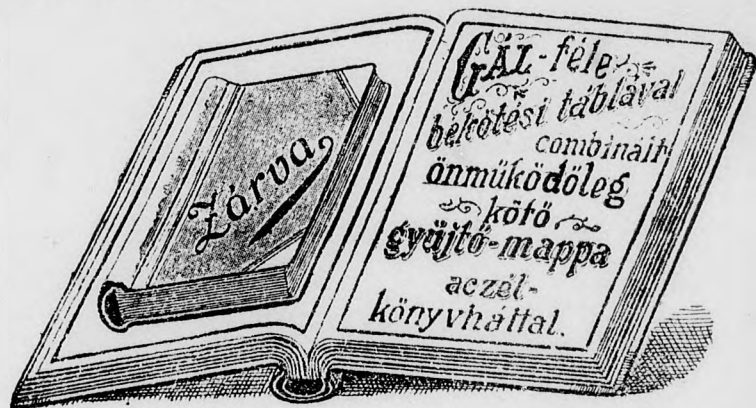 Zárva
GÁL-féle
bekötési táblával
combinált
önműködőleg
kötő
gyűjtő-mappa
aczél-
könyvháttal.